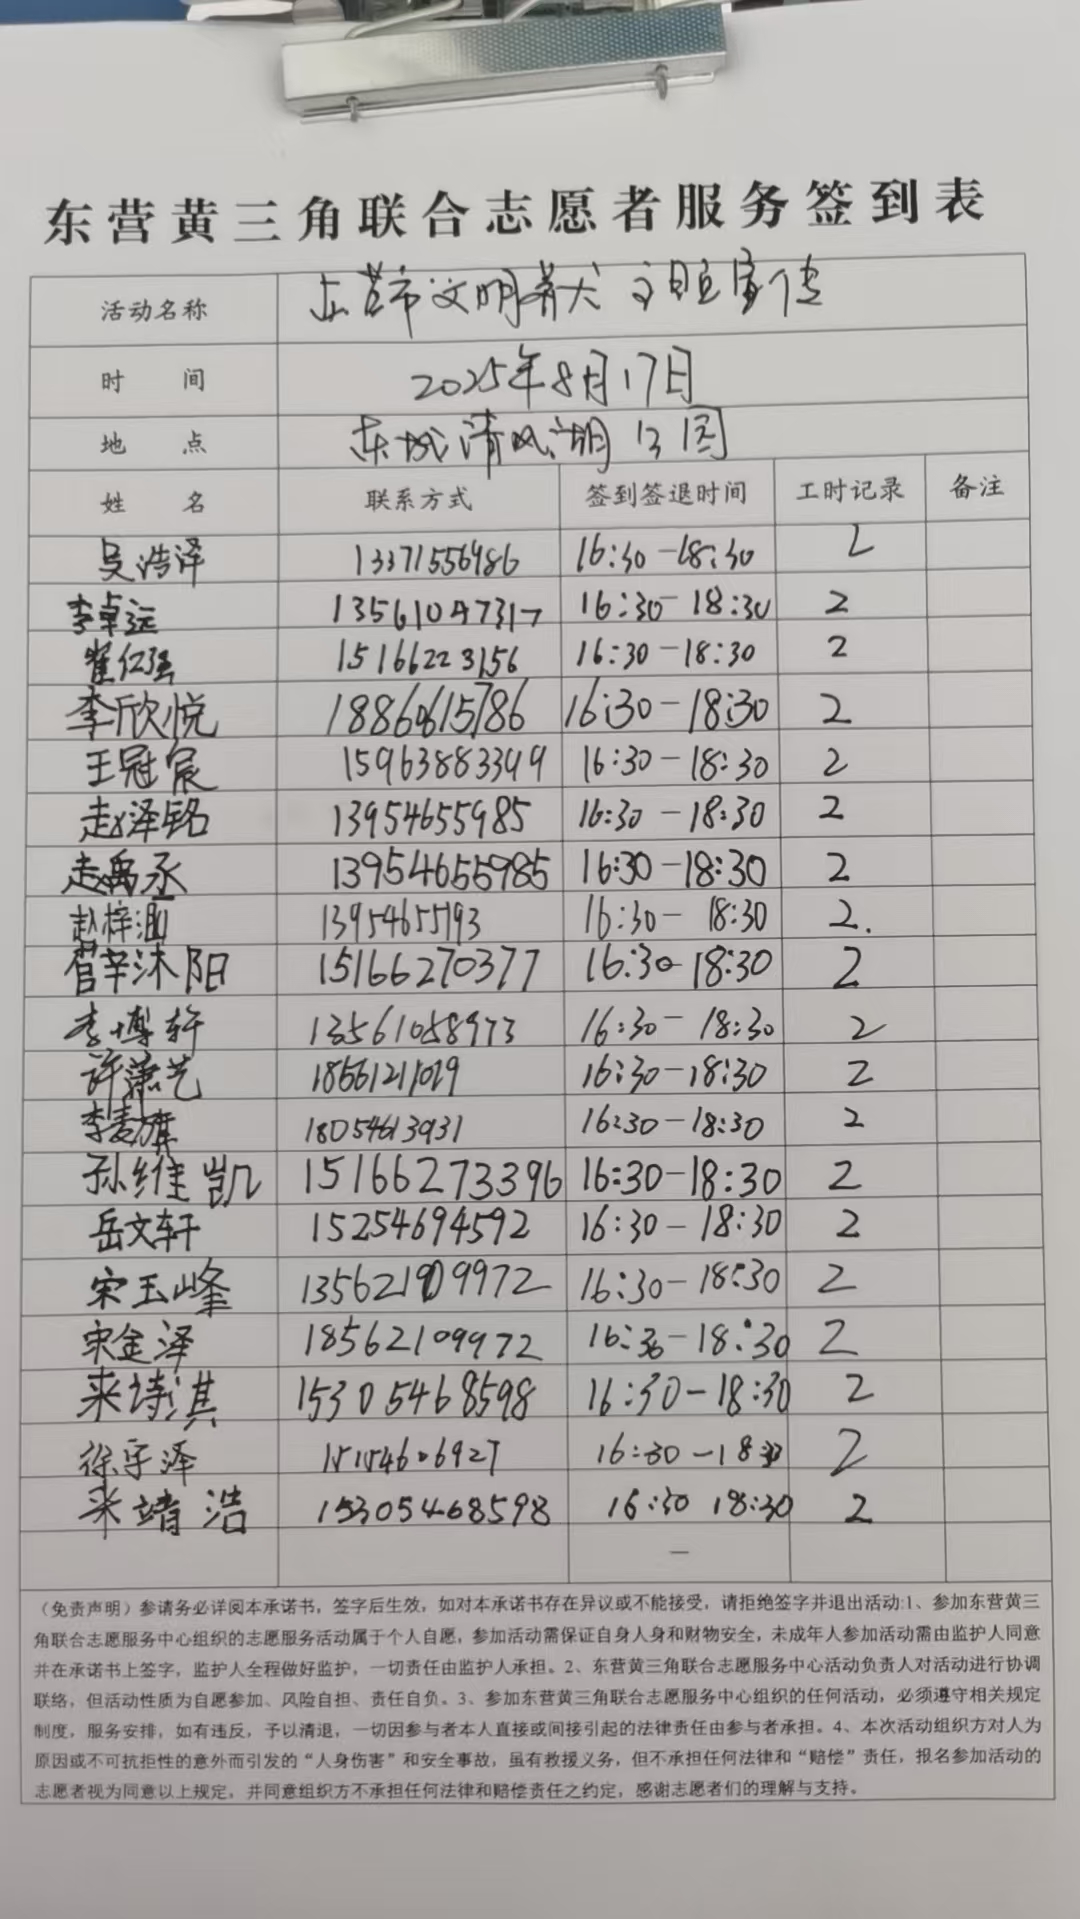 东营黄三角联合志愿者服务签到表
活动名称 东营市文明养犬主题宣传
时 间 2025年8月17日
地 点 东城清风湖公园
姓 名 联系方式 签到签退时间 工时记录 备注
吴浩泽 13371556986 16:30-18:30 2
李卓远 13561047317 16:30-18:30 2
崔仁强 15166223156 16:30-18:30 2
李欣悦 18860615786 16:30-18:30 2
王冠宸 15963883349 16:30-18:30 2
赵泽铭 13954655985 16:30-18:30 2
赵禹丞 13954655985 16:30-18:30 2
赵梓涵 13954655193 16:30-18:30 2.
管辛沐阳 15166270377 16:30-18:30 2
李博轩 13561058973 16:30-18:30 2
许潇艺 16:30-18:30 2
李麦旗 18054613931 16:30-18:30 2
孙维凯 15166273396 16:30-18:30 2
岳文轩 15254694592 16:30-18:30 2
宋玉峰 13562109972 16:30-18:30 2
宋金泽 18562109972 16:30-18:30 2
来诗淇 15305468598 16:30-18:30 2
徐宇泽 15154606927 16:30-18:30 2
来靖浩 15305468598 16:30 18:30 2
—
（免责声明）参请务必详阅本承诺书，签字后生效，如对本承诺书存在异议或不能接受，请拒绝签字并退出活动:1、参加东营黄三
角联合志愿服务中心组织的志愿服务活动属于个人自愿，参加活动需保证自身人身和财物安全，未成年人参加活动需由监护人同意
并在承诺书上签字，监护人全程做好监护，一切责任由监护人承担。2、东营黄三角联合志愿服务中心活动负责人对活动进行协调
联络，但活动性质为自愿参加、风险自担、责任自负。3、参加东营黄三角联合志愿服务中心组织的任何活动，必须遵守相关规定
制度，服务安排，如有违反，予以清退，一切因参与者本人直接或间接引起的法律责任由参与者承担。4、本次活动组织方对人为
原因或不可抗拒性的意外而引发的“人身伤害”和安全事故，虽有救援义务，但不承担任何法律和“赔偿”责任，报名参加活动的
志愿者视为同意以上规定，并同意组织方不承担任何法律和赔偿责任之约定，感谢志愿者们的理解与支持。